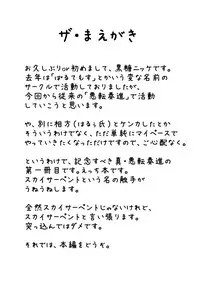 ザ・まえがき
お久しぶりor初めまして、黒糖ニッケです。
去年は「ぽるてもす」とかいう変な名前の
サークルで活動しておりましたが、
今回から従来の「悪転奏進」で活動
していこうと思います。
や、別に相方（はるぅ氏）とケンカしたとか
そういうわけでなく、ただ単純にマイペースで
やっていきたくなっただけですので、ご心配なく。
というわけで、記念すべき真・悪転奏進の
第一冊目です。えっち本です。
スカイサーペントという名の触手が
うねうねします。
全然スカイサーペントじゃないけれど、
スカイサーペントと言い張ります。
突っ込んではダメです。
それでは、本編をどうぞ。